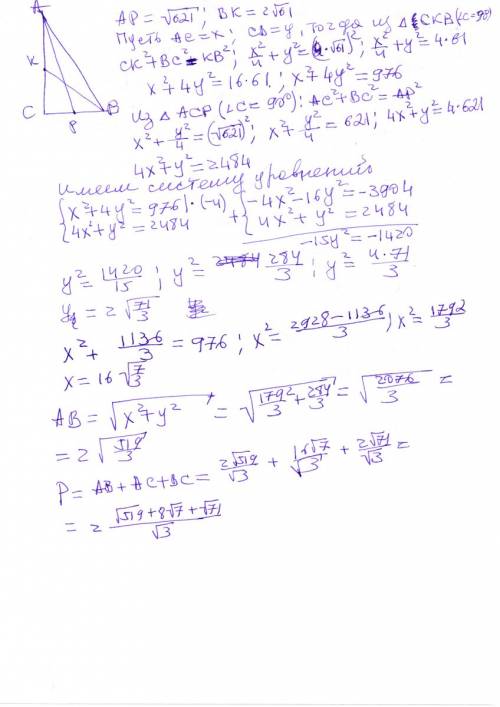 A
K
C
P
B
AP = √621; BK = 2√61
Пусть AC = x; CB = y, тогда из Δ CKB (∠C = 90°)
CK² + BC² = KB²; x²/4 + y² = (2·√61)²; x²/4 + y² = 4·61
x² + 4y² = 16·61; x² + 4y² = 976
Из Δ ACP (∠C = 90°): AC² + BC² = AP²
x² + y²/4 = (√621)²; x² + y²/4 = 621; 4x² + y² = 4·621
4x² + y² = 2484
имеем систему уравнений
{x² + 4y² = 976 |·(-4) + {-4x² - 16y² = -3904
{4x² + y² = 2484 {4x² + y² = 2484
-15y² = -1420
y² = 1420/15; y² = 284/3; y² = 4·71/3
y = 2√71/3
x² + 1136/3 = 976; x² = 2928-1136/3; x² = 1792/3
x = 16√7/3
AB = √x² + y² = √1792/3 + 284/3 = √2076/3 =
= 2√519/3
P = AB + AC + BC = 2√519/√3 + 16√7/√3 + 2√71/√3 =
= 2 √519 + 8√7 + √71/√3